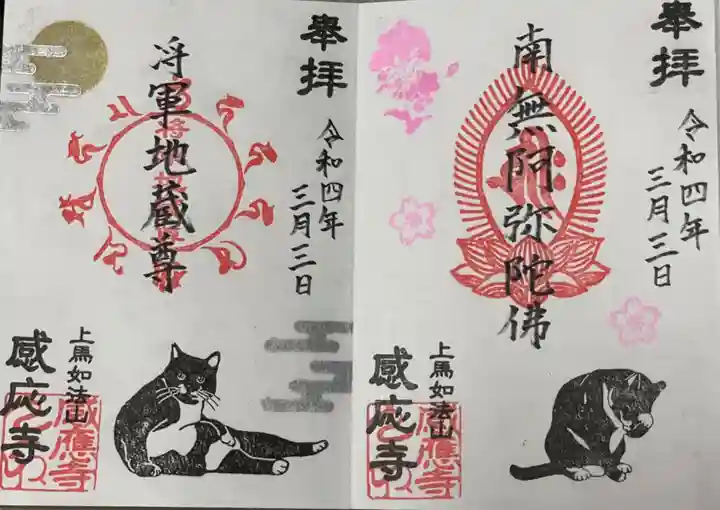 奉拝
南無阿弥陀佛
令和四年
三月三日
上馬如法山
感応寺
感應寺
奉拝
将軍地蔵尊
令和四年
三月三日
上馬如法山
感応寺
感應寺